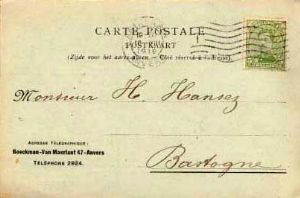 CARTE POSTALE
POSTKAART
(Zijde voor het adres alleen. — Côté réservé à l'adresse.)
Monsieur H. Hansez
Bastogne
ADRESSE TÉLÉGRAPHIQUE:
Boeckman-Van Maerlant 47-Anvers
TÉLÉPHONE 2904.